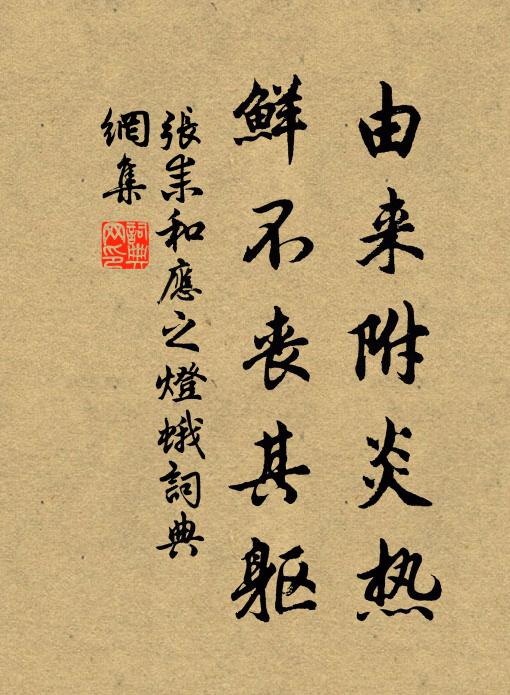 由来附炎热
鮮不丧其躯
張耒和應之燈蛾詞典
網集
詞典
网印